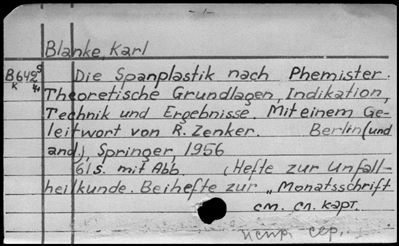 - 1 -
Blanke, Karl
B 642 s Die Spanplastik nach Phemister.
k 41 Theoretische Grundlagen, Indikation,
Technik und Ergebnisse. Mit einem Ge-
leitwort von R. Zenker. Berlin (und
and.), Springer, 1956
61 S. mit Abb. (Hefte zur Unfall-
heilkunde. Beihefte zur „Monatsschrift
см. сл. карт.
испр. сер.